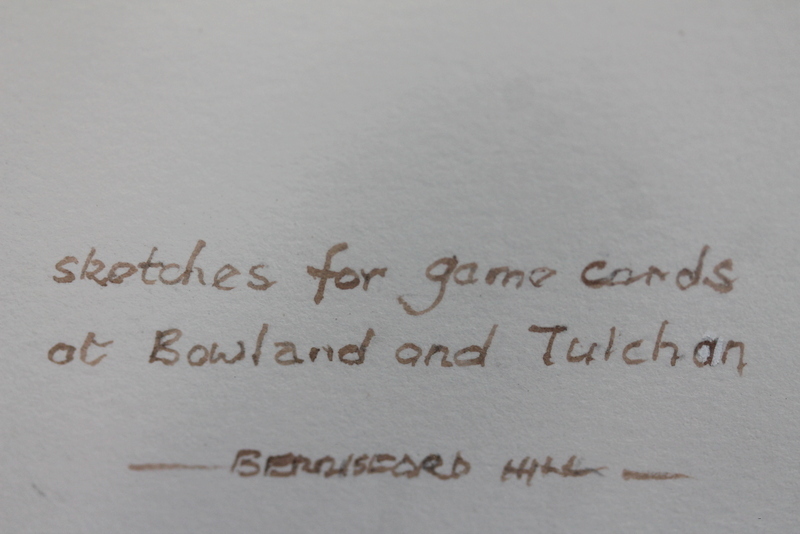 sketches for game cards
at Bowland and Tulchan
— BERRISFORD HILL —